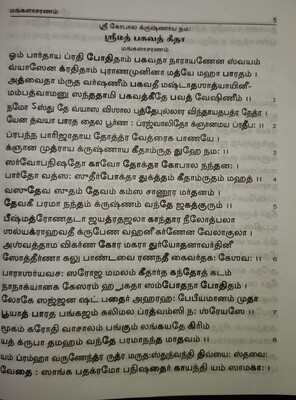 மங்களாசரணம்
5
ஸ்ரீ கோபால க்ருஷ்ணாய நம:
ஸ்ரீமத் பகவத் கீதா
மங்களாசரணம்
ஓம் பார்தாய ப்ரதி போதிதாம் பகவதா நாராயணேன ஸ்வயம்
வ்யாஸேன க்ரதிதாம் புராணமுனினா மத்யே மஹா பாரதம் ।
அத்வைதா ம்ருத வர்ஷிணீம் பகவதீ மஷ்டாதசாத்யாயினீ-
மம்பத்வாமனு ஸந்ததாமி பகவத்கீதே பவத் வேஷிணீம் ॥ 1
நமோ ஸ்துதே வ்யாஸ விஸால புத்தேபுல்லார விந்தாயதபத்ர நேத்ர ।
யேன த்வயா பாரத தைல பூர்ண: ப்ரஜ்வாலிதோ க்ஞானமய ப்ரதீப: ॥ 2
ப்ரபந்ந பாரிஜாதாய தோத்த்ர வேத்ரைக பாணயே ।
க்ஞான முத்ராய க்ருஷ்ணாய கீதாம்ருத துஹே நம: ॥ 3
ஸர்வோபநிஷதோ காவோ தோக்தா கோபால நந்தன: ।
பார்தோ வத்ஸ: ஸுதீர்போக்தா துக்த்தம் கீதாம்ருதம் மஹத் ॥ 4
வஸுதேவ ஸுதம் தேவம் கம்ஸ சாணூர மர்தனம் ।
தேவகீ பரமா நந்தம் க்ருஷ்ணம் வந்தே ஜகத்குரும் ॥ 5
பீஷ்மத்ரோணதடா ஜயத்ரதஜலா காந்தார நீலோத்பலா
ஸல்யக்ராஹவதீ க்ருபேண வஹனீ கர்ணேன வேலாகுலா ।
அஸ்வத்தாம விகர்ண கோர மகரா துர்யோதனாவர்தினீ
ஸோத்தீர்ணா கலு பாண்டவை ரணநதீ கைவர்தக: கேஸவ: ॥ 6
பாராஸர்யவச: ஸரோஜ மமலம் கீதார்த கந்தோத் கடம்
நாநாக்யானக கேஸரம் ஹரிகதா ஸம்போதநா போதிதம் ।
லோகே ஸஜ்ஜன ஷட் பதைர் அஹரஹ: பேபீயமானம் முதா
பூயாத் பாரத பங்கஜம் கலிமல ப்ரத்வம்ஸி ந: ஸ்ரேயஸே ॥ 7
மூகம் கரோதி வாசாலம் பங்கும் லங்கயதே கிரிம்
யத் க்ருபா தமஹம் வந்தே பரமாநந்த மாதவம் ॥ 8
யம் ப்ரம்ஹா வருணேந்த்ர ருத்ர மருத:ஸ்துன்வந்தி திவ்யை: ஸ்தவை:
வேதை: ஸாங்க பதக்ரமோ பநிஷதைர் காயந்தி யம் ஸாமகா: ।